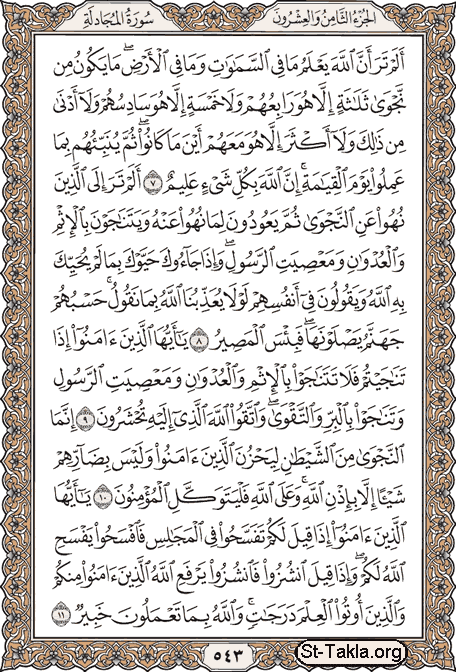 الجزء الثامن والعشرون
سورة المجادلة
أَلَمْ تَرَ أَنَّ ٱللَّهَ يَعْلَمُ مَا فِى ٱلسَّمَٰوَٰتِ وَمَا فِى ٱلْأَرْضِ ۖ مَا يَكُونُ مِن
نَّجْوَىٰ ثَلَٰثَةٍ إِلَّا هُوَ رَابِعُهُمْ وَلَا خَمْسَةٍ إِلَّا هُوَ سَادِسُهُمْ وَلَآ أَدْنَىٰ
مِن ذَٰلِكَ وَلَآ أَكْثَرَ إِلَّا هُوَ مَعَهُمْ أَيْنَ مَا كَانُوا۟ ۖ ثُمَّ يُنَبِّئُهُم بِمَا
عَمِلُوا۟ يَوْمَ ٱلْقِيَٰمَةِ ۚ إِنَّ ٱللَّهَ بِكُلِّ شَىْءٍ عَلِيمٌ ٧ أَلَمْ تَرَ إِلَى ٱلَّذِينَ
نُهُوا۟ عَنِ ٱلنَّجْوَىٰ ثُمَّ يَعُودُونَ لِمَا نُهُوا۟ عَنْهُ وَيَتَنَٰجَوْنَ بِٱلْإِثْمِ
وَٱلْعُدْوَٰنِ وَمَعْصِيَتِ ٱلرَّسُولِ ۖ وَإِذَا جَآءُوكَ حَيَّوْكَ بِمَا لَمْ يُحَيِّكَ
بِهِ ٱللَّهُ وَيَقُولُونَ فِىٓ أَنفُسِهِمْ لَوْلَا يُعَذِّبُنَا ٱللَّهُ بِمَا نَقُولُ ۚ حَسْبُهُمْ
جَهَنَّمُ يَصْلَوْنَهَا ۖ فَبِئْسَ ٱلْمَصِيرُ ٨ يَٰٓأَيُّهَا ٱلَّذِينَ ءَامَنُوٓا۟ إِذَا
تَنَٰجَيْتُمْ فَلَا تَتَنَٰجَوْا۟ بِٱلْإِثْمِ وَٱلْعُدْوَٰنِ وَمَعْصِيَتِ ٱلرَّسُولِ
وَتَنَٰجَوْا۟ بِٱلْبِرِّ وَٱلتَّقْوَىٰ ۖ وَٱتَّقُوا۟ ٱللَّهَ ٱلَّذِىٓ إِلَيْهِ تُحْشَرُونَ ٩ إِنَّمَا
ٱلنَّجْوَىٰ مِنَ ٱلشَّيْطَٰنِ لِيَحْزُنَ ٱلَّذِينَ ءَامَنُوا۟ وَلَيْسَ بِضَآرِّهِمْ
شَيْـًٔا إِلَّا بِإِذْنِ ٱللَّهِ ۚ وَعَلَى ٱللَّهِ فَلْيَتَوَكَّلِ ٱلْمُؤْمِنُونَ ١٠ يَٰٓأَيُّهَا
ٱلَّذِينَ ءَامَنُوٓا۟ إِذَا قِيلَ لَكُمْ تَفَسَّحُوا۟ فِى ٱلْمَجَٰلِسِ فَٱفْسَحُوا۟ يَفْسَحِ
ٱللَّهُ لَكُمْ ۖ وَإِذَا قِيلَ ٱنشُزُوا۟ فَٱنشُزُوا۟ يَرْفَعِ ٱللَّهُ ٱلَّذِينَ ءَامَنُوا۟ مِنكُمْ
وَٱلَّذِينَ أُوتُوا۟ ٱلْعِلْمَ دَرَجَٰتٍ ۚ وَٱللَّهُ بِمَا تَعْمَلُونَ خَبِيرٌ ١١
٥٤٣
St-Takla.org